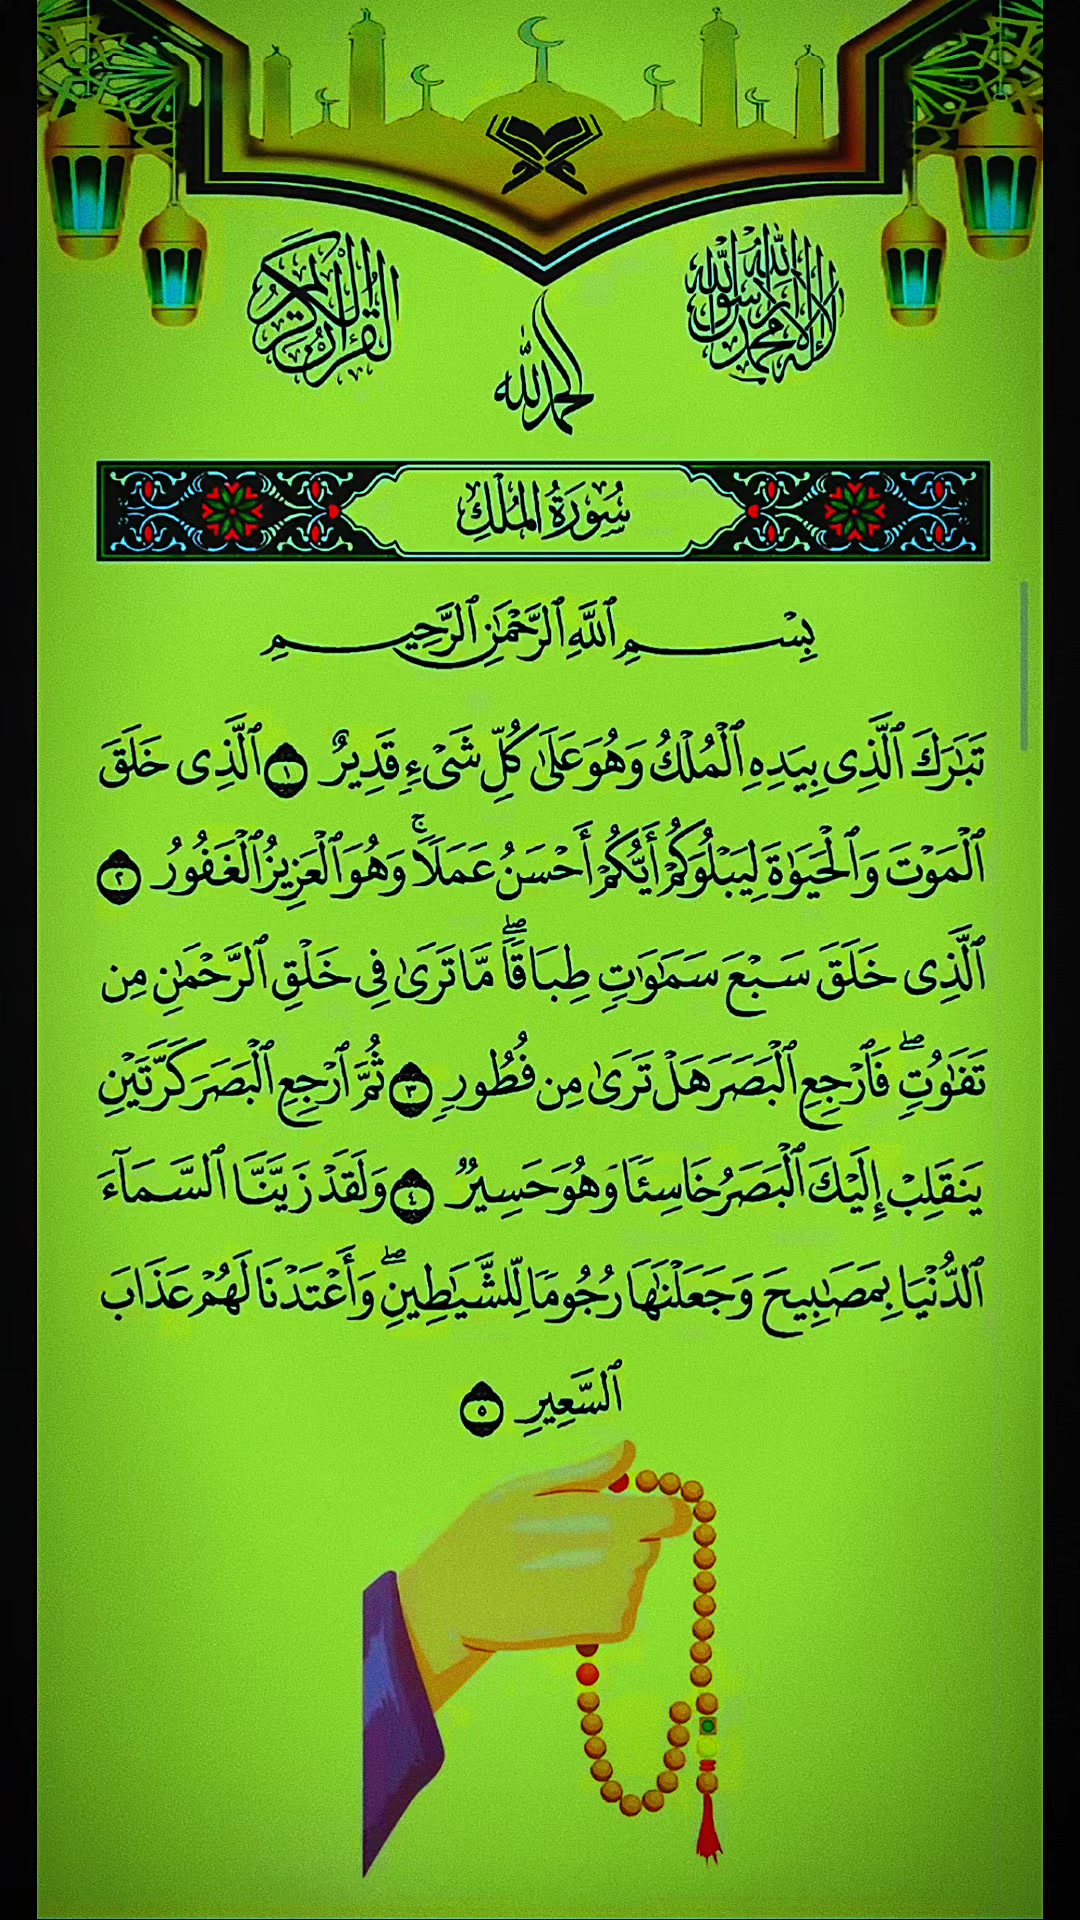 القرآن الكريم
لا إله إلا الله محمد رسول الله
الحمد لله
سُورَةُ المُلْكِ
بِسْمِ ٱللَّهِ ٱلرَّحْمَٰنِ ٱلرَّحِيمِ
تَبَٰرَكَ ٱلَّذِى بِيَدِهِ ٱلْمُلْكُ وَهُوَ عَلَىٰ كُلِّ شَىْءٍ قَدِيرٌ ١ ٱلَّذِى خَلَقَ
ٱلْمَوْتَ وَٱلْحَيَوٰةَ لِيَبْلُوَكُمْ أَيُّكُمْ أَحْسَنُ عَمَلًا ۚ وَهُوَ ٱلْعَزِيزُ ٱلْغَفُورُ ٢
ٱلَّذِى خَلَقَ سَبْعَ سَمَٰوَٰتٍ طِبَاقًا ۖ مَّا تَرَىٰ فِى خَلْقِ ٱلرَّحْمَٰنِ مِن
تَفَٰوُتٍ ۖ فَٱرْجِعِ ٱلْبَصَرَ هَلْ تَرَىٰ مِن فُطُورٍ ٣ ثُمَّ ٱرْجِعِ ٱلْبَصَرَ كَرَّتَيْنِ
يَنقَلِبْ إِلَيْكَ ٱلْبَصَرُ خَاسِئًا وَهُوَ حَسِيرٌ ٤ وَلَقَدْ زَيَّنَّا ٱلسَّمَآءَ
ٱلدُّنْيَا بِمَصَٰبِيحَ وَجَعَلْنَٰهَا رُجُومًا لِّلشَّيَٰطِينِ ۖ وَأَعْتَدْنَا لَهُمْ عَذَابَ
ٱلسَّعِيرِ ٥